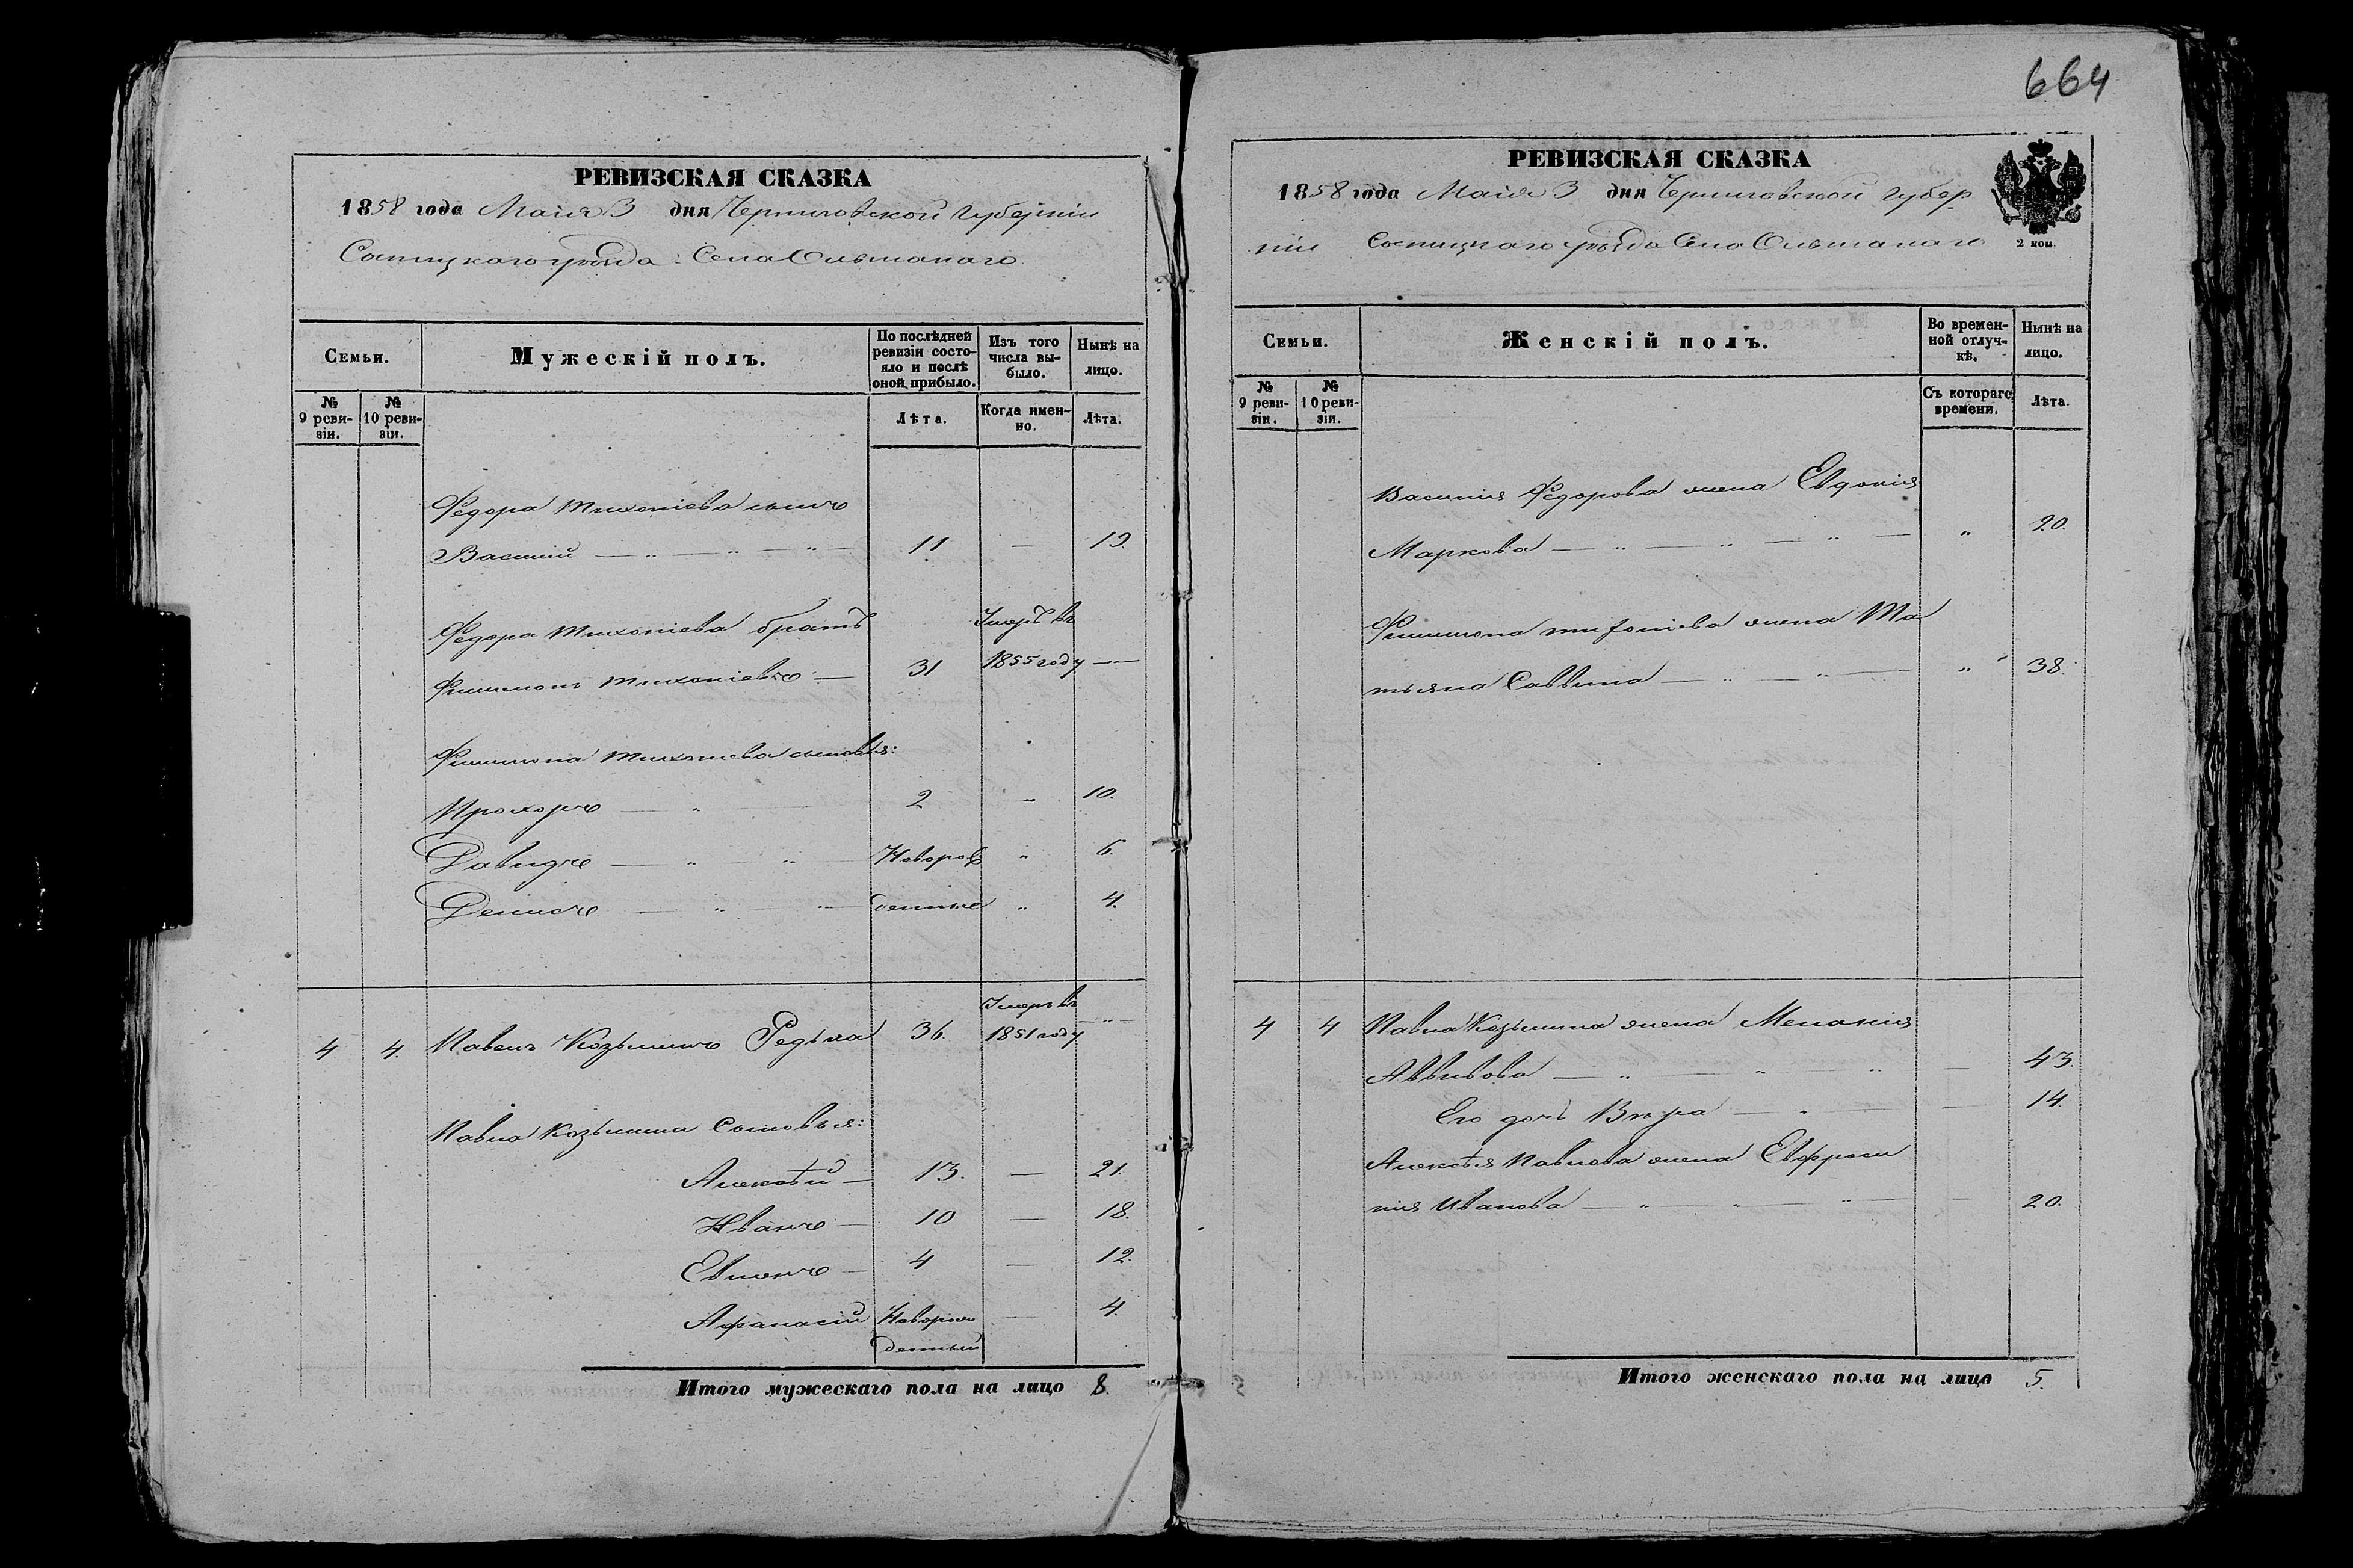 664
РЕВИЗСКАЯ СКАЗКА
1858 года Майя 3 дня Черниговской Губерніи
Сосницкаго уѣзда Села Ольшанаго
Семьи.
Мужескій полъ.
По послѣдней ревизіи состо-
яло и послѣ
оной прибыло.
Изъ того
числа вы-
было.
Нынѣ на
лицо.
№
9 реви-
зіи.
№
10 реви-
зіи.
Лѣта.
Когда имен-
но.
Лѣта.
Федора Тихоніева сынъ
Василій — „ — „ — „ — 11 — 19.
Федора Тихоніева братъ Умеръ въ
Филимонъ Тихоніевъ — 31 1855 году —
Филимона Тихоніева сыновья:
Прохоръ — „ — 2 „ 10.
Давидъ — „ „ — Новорож „ 6.
Денисъ — „ „ — денные „ 4.
Умеръ въ
4 4. Павелъ Козьминъ Редька 36. 1851 году — „ —
Павла Козьмина Сыновья:
Алексѣй — 13. — 21.
Иванъ — 10 — 18.
4 — 12.
Афанасій Новорож — 4.
денный
Итого мужескаго пола на лицо 8.
РЕВИЗСКАЯ СКАЗКА
1858 года Майя 3 дня Черниговской Губер
ніи Сосницкаго уѣзда Села Ольшанаго
2 коп.
Семьи.
Женскій полъ.
Во времен-
ной отлуч-
кѣ.
Нынѣ на
лицо.
№
9 реви-
зіи.
№
10 реви-
зіи.
Съ котораго
времени.
Лѣта.
Василія Федорова жена Евдокія
Маркова — „ — „ — „ — „ 20.
Филимона Тихоніева жена Та
тьяна Саввина — „ — „ — „ 38.
4 4 Павла Козьмина жена Меланія
— „ — „ — „ — 43.
Его дочь Вѣра — „ — — 14.
Алексѣя Павлова жена Евфроси
нія Иванова — „ — „ — „ — — 20.
Итого женскаго пола на лицо 5.